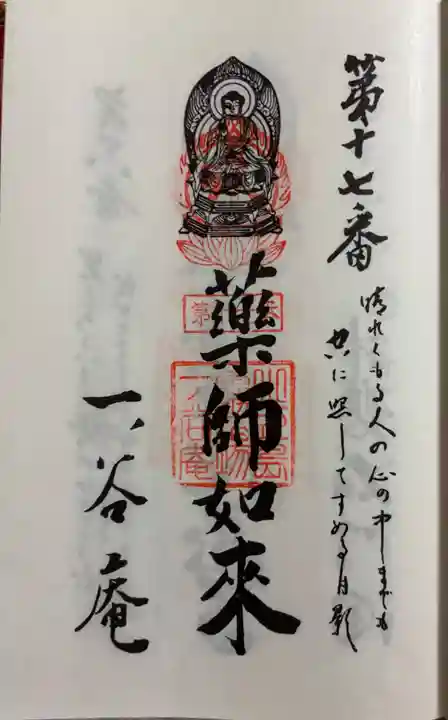 第十七番
晴れくもる人の心の中までも
空に照してすめる月影
薬師如来
第
一ノ谷庵